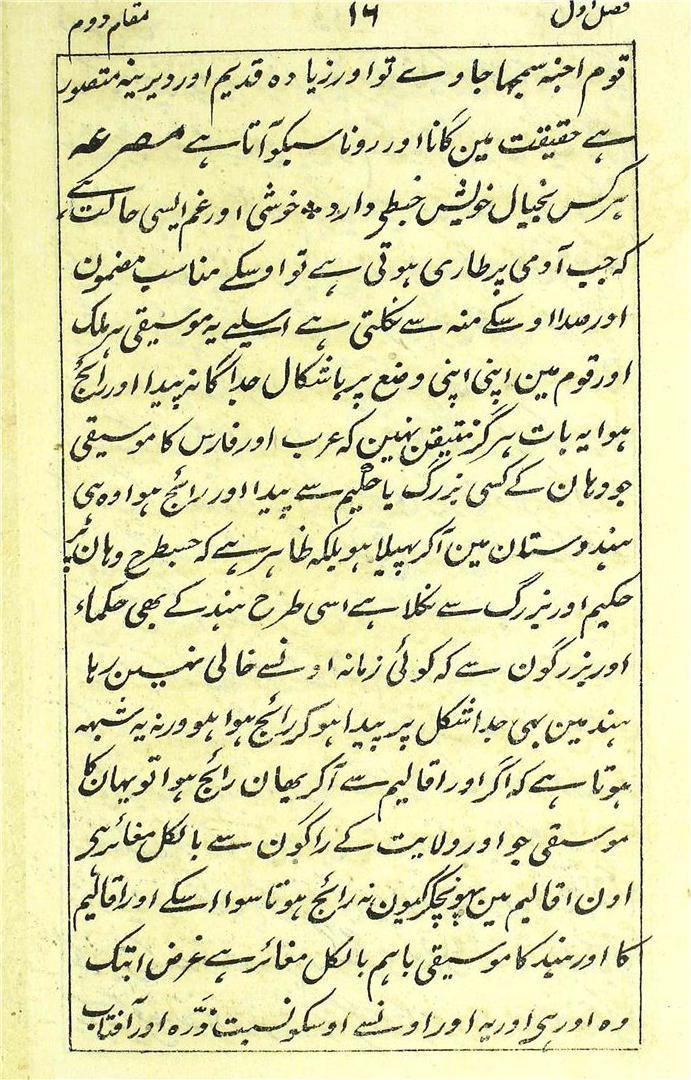 فصل اول ۱۶ مقام دوم
قوم اجنہ سمجھا جاوے تو اور زیادہ قدیم اور دیرینہ متصور
ہے حقیقت مین گانا اور رونا سبکو آتا ہے مصرعہ
ہر کس بخیال خویش خبطی دارد * خوشی اور غم ایسی حالت ہے
کہ جب آدمی پر طاری ہوتی ہے تو اوسکے مناسب مضمون
اور صدا اوسکے منہ سے نکلتی ہے اسلیے یہ موسیقی ہر ملک
اور قوم مین اپنی اپنی وضع پر باشکال جداگانہ پیدا اور رائج
ہوا یہ بات ہرگز متیقن نہین کہ عرب اور فارس کا موسیقی
جو وہان کے کسی بزرگ یا حکیم سے پیدا اور رائج ہوا وہ ہی
ہندوستان مین آکر پھیلا ہو بلکہ ظاہر ہے کہ جسطرح وہان پر
حکیم اور بزرگ سے نکلا ہے اسی طرح ہند کے بھی حکماء
اور بزرگون سے کہ کوئی زمانہ اونسے خالی نہین رہا
ہند مین بھی جدا شکل پر پیدا ہو کر رائج ہوا ہو ورنہ یہ شبہہ
ہوتا ہے کہ اگر اور اقالیم سے آکر یہان رائج ہوا تو یہان کا
موسیقی جو اور ولایت کے راگون سے بالکل مغائر ہی
اون اقالیم مین پہونچکر کیون نہ رائج ہوتا سوا اسکے اور اقالیم
کا اور ہند کا موسیقی باہم بالکل مغائر ہے غرض ابتک
وہ اور ہی اور یہ اور اونسے اوسکو نسبت ذرّہ اور آفتاب